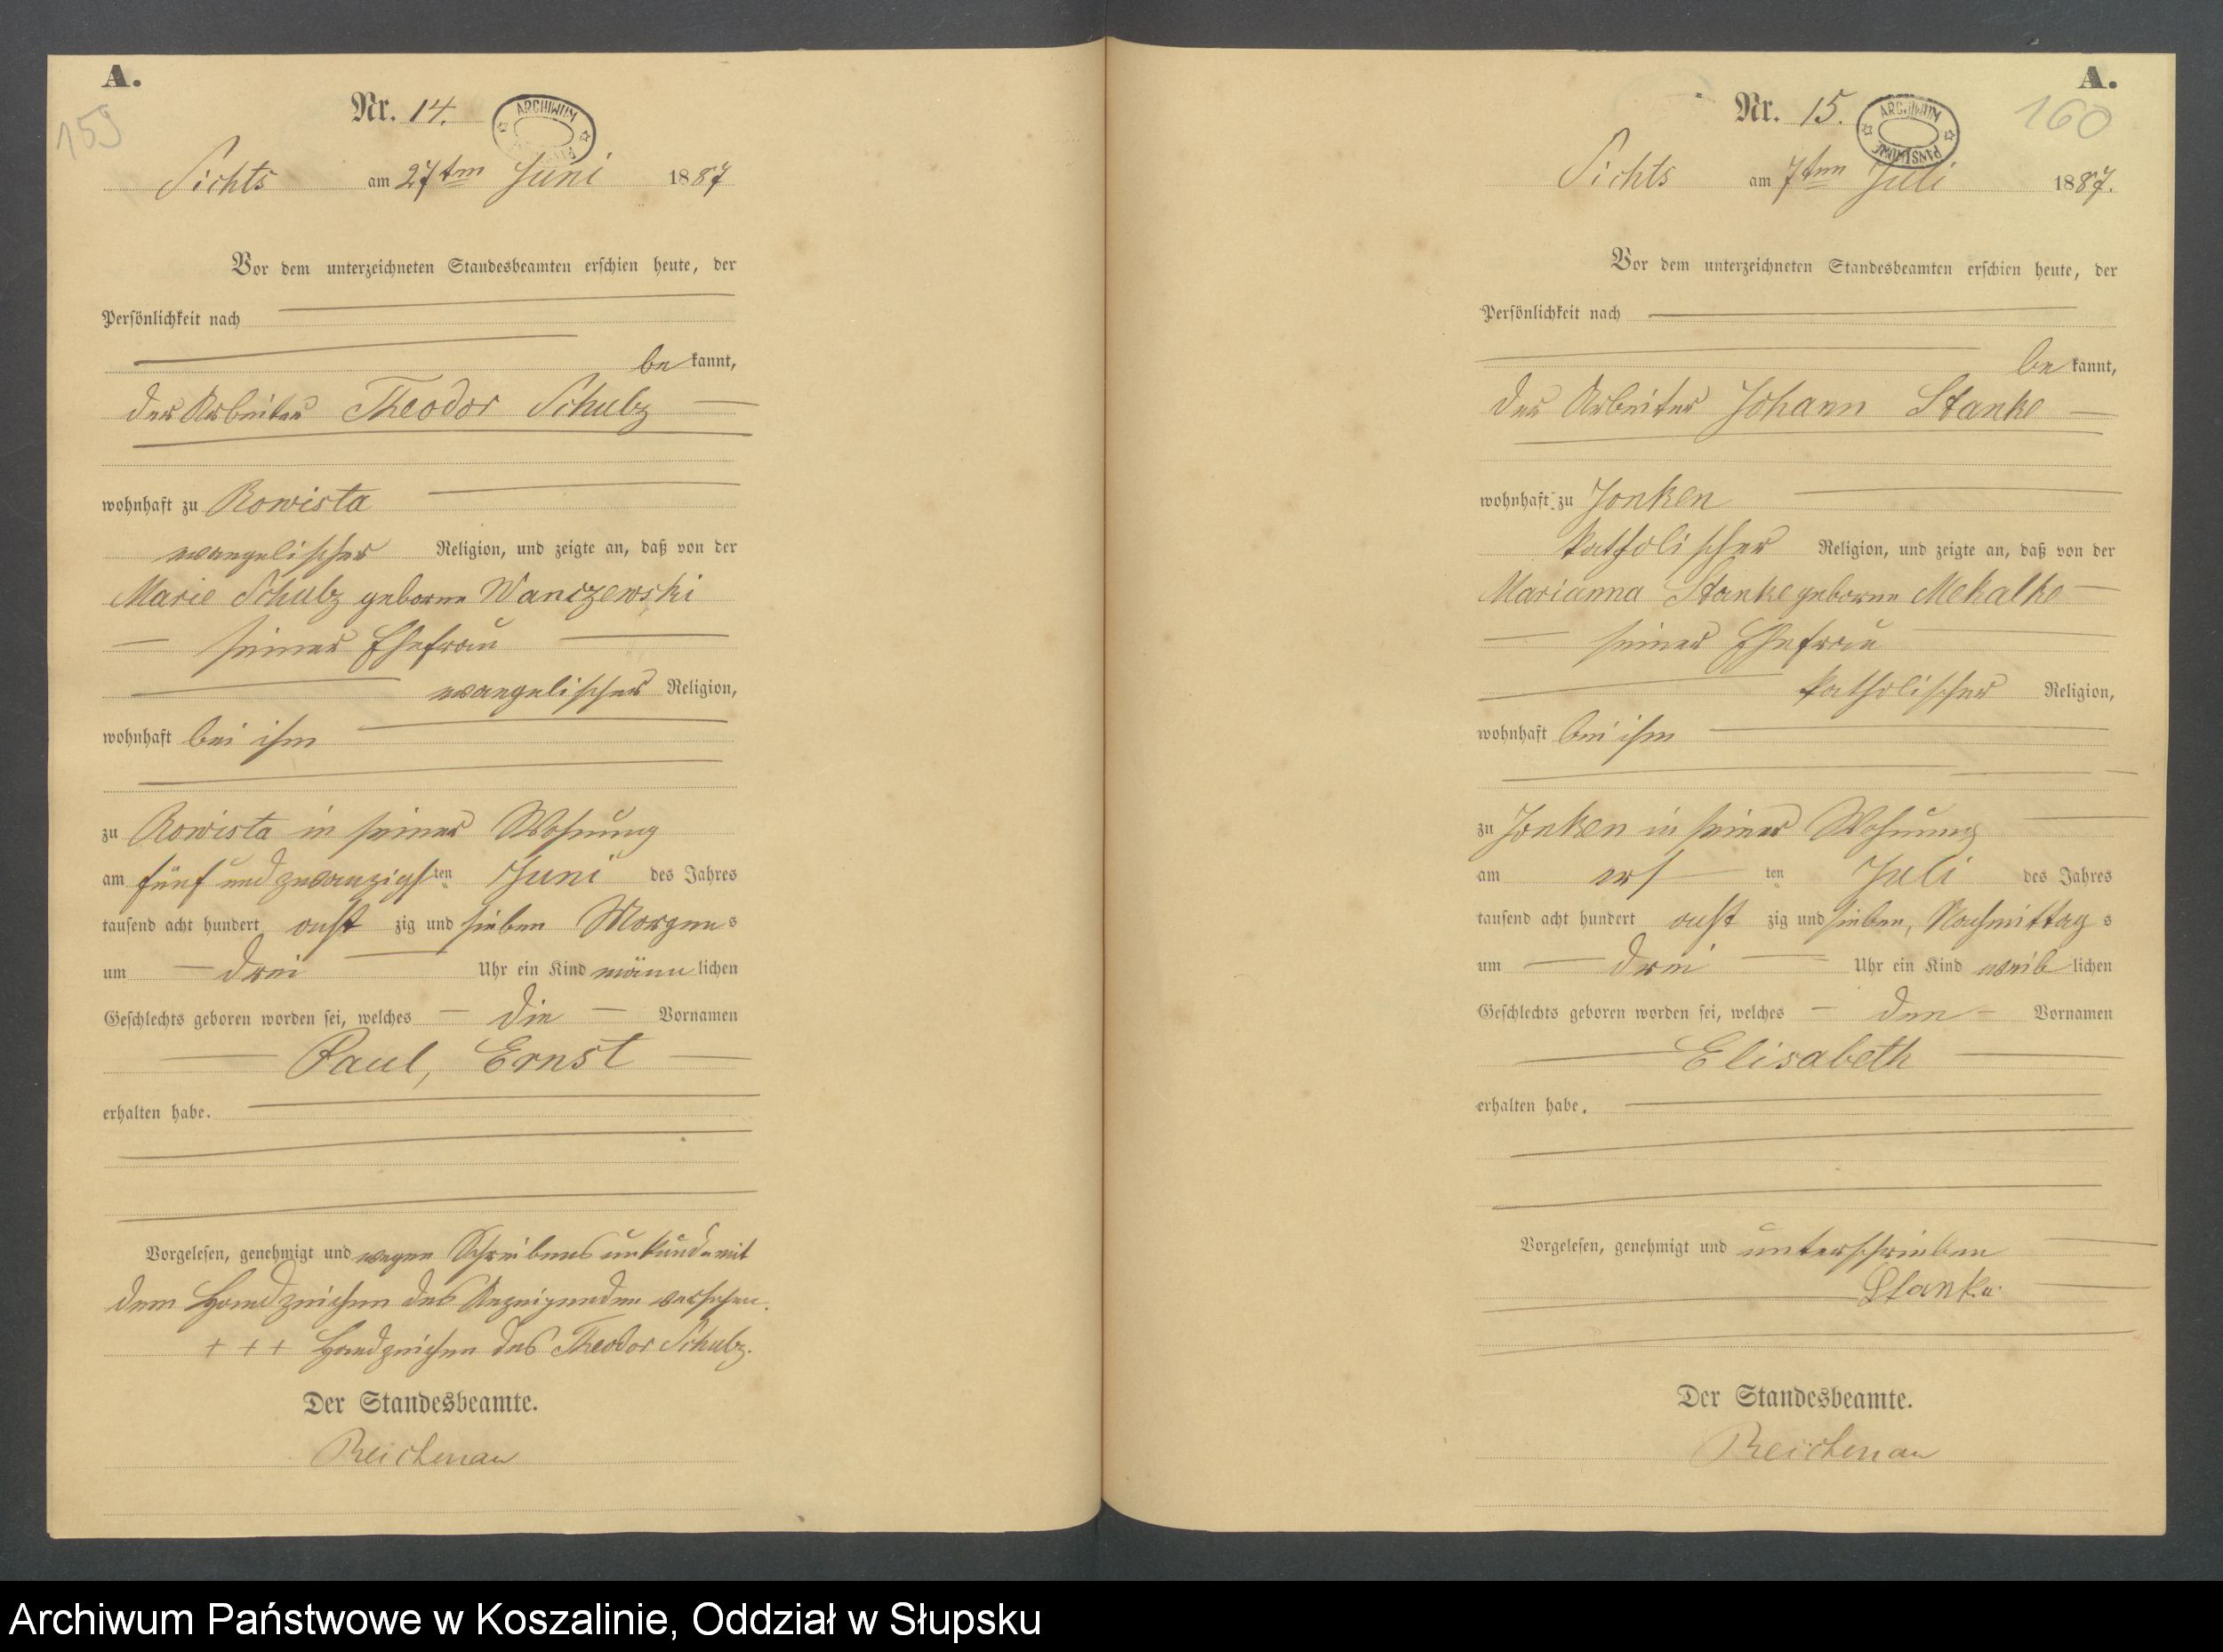 A.
159
Nr. 14.
ARCHIWUM
Sichts am 27ten Juni 1887
Vor dem unterzeichneten Standesbeamten erschien heute, der
Persönlichkeit nach
be kannt,
der Arbeiter Theodor Schulz
wohnhaft zu Rowista
evangelischer Religion, und zeigte an, daß von der
Marie Schulz geborne Wanczewski
seiner Ehefrau
evangelischer Religion,
wohnhaft bei ihm
zu Rowista in seiner Wohnung
am fünf und zwanzigsten Juni des Jahres
tausend acht hundert acht zig und sieben Morgens
um drei Uhr ein Kind männ lichen
Geschlechts geboren worden sei, welches die Vornamen
Paul, Ernst
erhalten habe.
Vorgelesen, genehmigt und wegen Schreibensunkunde mit
dem Handzeichen des Anzeigenden versehen.
+ + + Handzeichen des Theodor Schulz.
Der Standesbeamte.
Reichenau
A.
160
Nr. 15.
ARCHIWUM PAŃSTWOWE
Sichts am 7ten Juli 1887.
Vor dem unterzeichneten Standesbeamten erschien heute, der
Persönlichkeit nach
be kannt,
der Arbeiter Johann Stanke
wohnhaft zu Jonken
katholischer Religion, und zeigte an, daß von der
Marianna Stanke geborne Mekalke
seiner Ehefrau
katholischer Religion,
wohnhaft bei ihm
zu Jonken in seiner Wohnung
am ers ten Juli des Jahres
tausend acht hundert acht zig und sieben, Nachmittag s
um drei Uhr ein Kind weib lichen
Geschlechts geboren worden sei, welches den Vornamen
Elisabeth
erhalten habe.
Vorgelesen, genehmigt und unterschrieben
Stanke
Der Standesbeamte.
Reichenau
Archiwum Państwowe w Koszalinie, Oddział w Słupsku